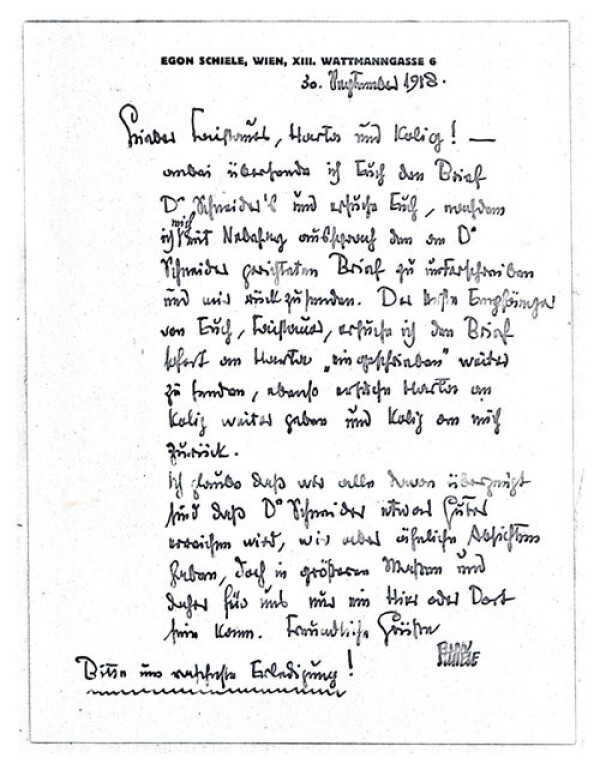 EGON SCHIELE, WIEN, XIII. WATTMANNGASSE 6
30. September 1918.
Lieber Faistauer, Harta und Kolig! —
anbei übersende ich Euch den Brief
Dr Schneider's und ersuche Euch, nachdem
ich mich mit Nebehay aussprach den an Dr
Schneider gerichteten Brief zu unterschreiben
und mir rückzusenden. Der erste Empfänger
von Euch, Faistauer, ersuche ich den Brief
sofort an Harta „eingeschrieben" weiter
zu senden, ebenso ersuche Harta an
Kolig weiter geben und Kolig an mich
zurück.
Ich glaube daß wir alle davon überzeugt
sind daß Dr Schneider etwas Gutes
erreichen wird, wir aber ähnliche Absichten
haben, doch in größeren Massen und
daher für uns nur ein Hier oder Dort
sein kann. Freundliche Grüße
EGON
SCHIELE
Bitte um rascheste Erledigung!